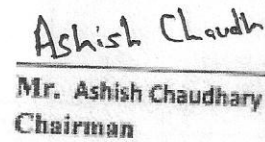 Ashish Chaudh
Mr. Ashish Chaudhary
Chairman